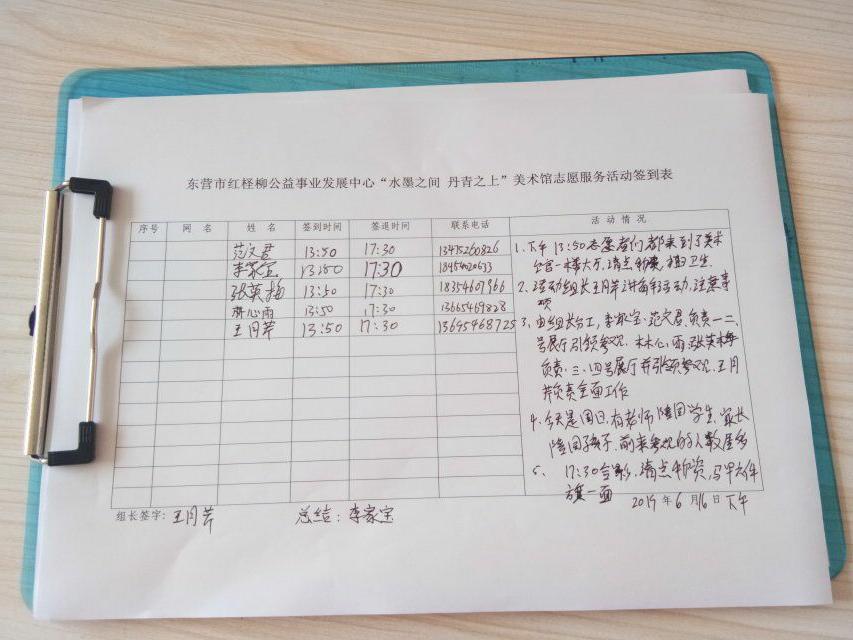 东营市红柽柳公益事业发展中心“水墨之间 丹青之上”美术馆志愿服务活动签到表
序号 网 名 姓 名 签到时间 签退时间 联系电话 活 动 情 况
范文君 13:50 17:30 13475260826
李家宝 13:50 17:30
张英梅 13:50 17:30 18354607966
心雨 13:50 17:30 13665469828
王月芹 13:50 17:30 13695468725
1、下午13:50志愿者们都来到了美术
馆一楼大厅,清点物资,卫生.
2、活动组长王月芹讲活动,注意事
项
3、由组长分工,李家宝、范文君,负责一二
号展厅引领参观,心雨,张英梅
负责、三、四号展厅并引领参观,王月
芹负责全面工作
4、今天是周日,有老师陪同学生,家长
陪同孩子,前来参观的人数居多
5、17:30合影,清点物资,马甲六件
旗一面
组长签字:王月芹 总结:李家宝 2019年6月16日下午